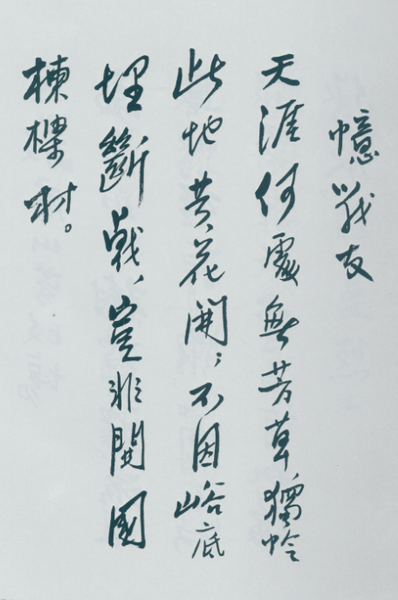 憶战友
天涯何處無芳草，獨憐
此地黄花開；不因峪底
埋斷戟，豈非開國
棟樑材。